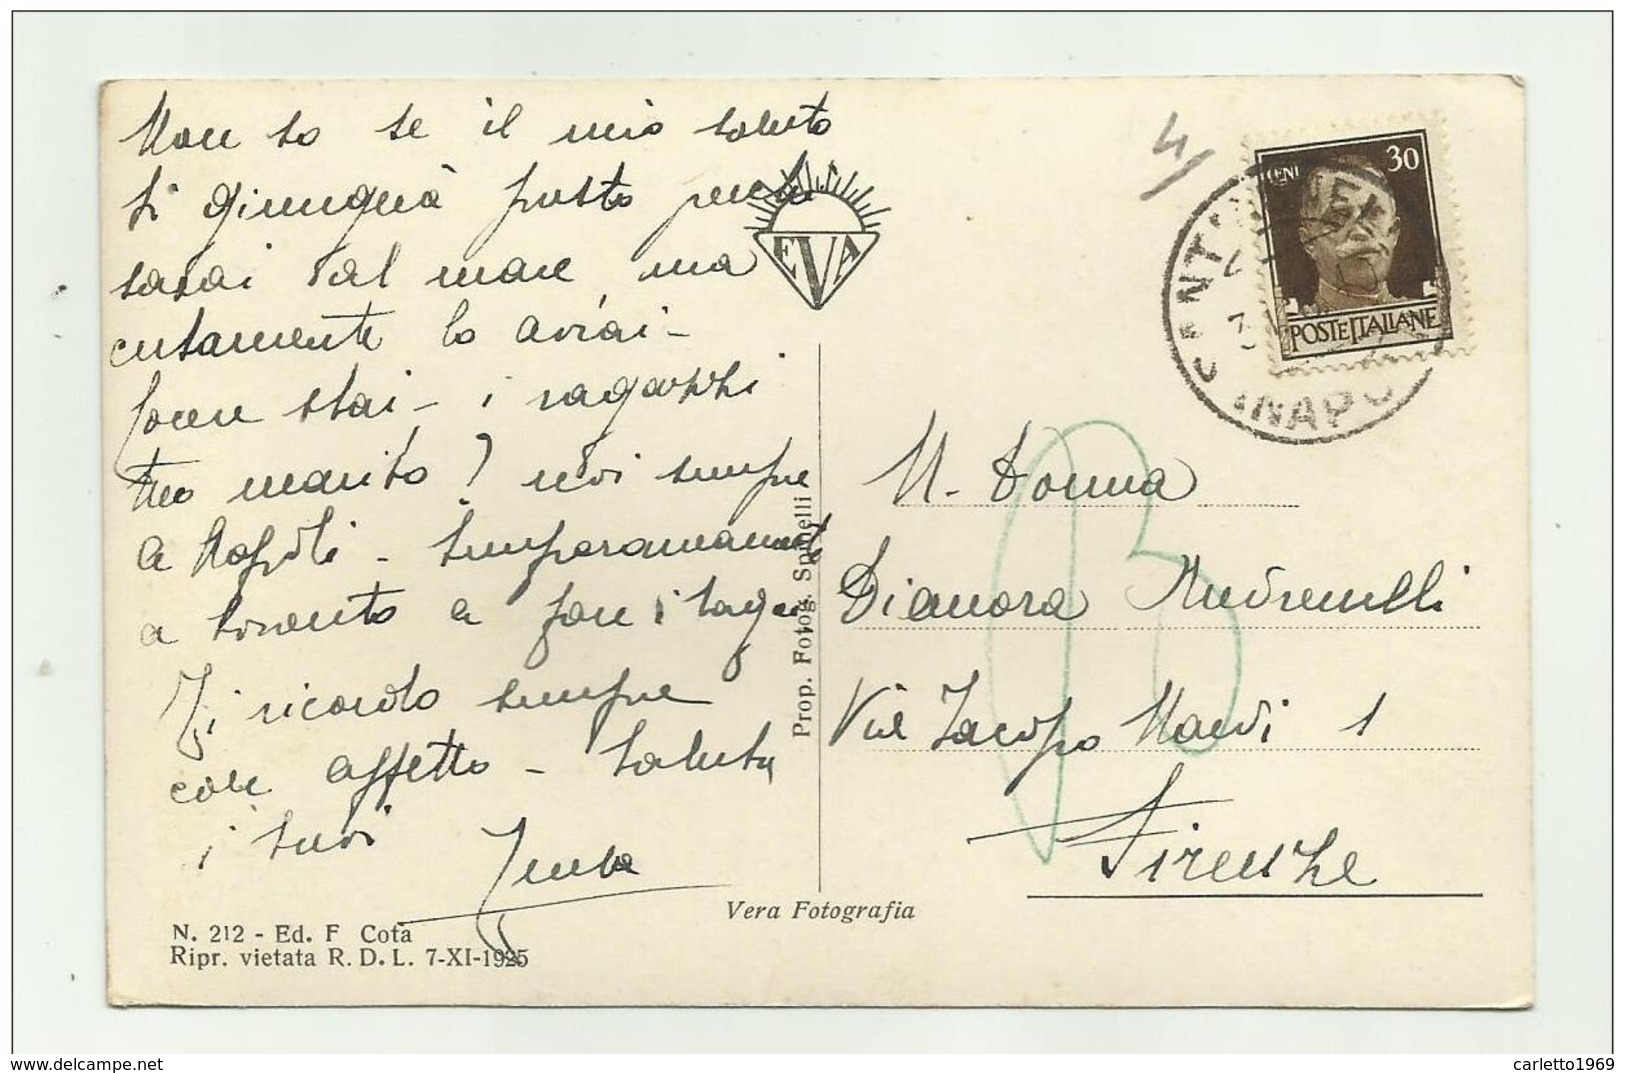 Non so se il mio saluto
ti giungerà presto perché
sarai al mare, ma
certamente lo avrai -
Come stai - i ragazzi
tuo marito? noi sempre
a Napoli - temporaneamente
a Sorrento a fare i bagni
Ti ricordo sempre
con affetto - Saluta
i tuoi
EVA
N. 212 - Ed. F Cota
Ripr. vietata R. D. L. 7-XI-1925
Vera Fotografia
Prop. Fotog. Spinelli
4/
CENT. 30
POSTE ITALIANE
N. Donna
Dianora Andreucelli
Via Jacopo Nardi 1
Firenze
carletto1969
https://picclick.com